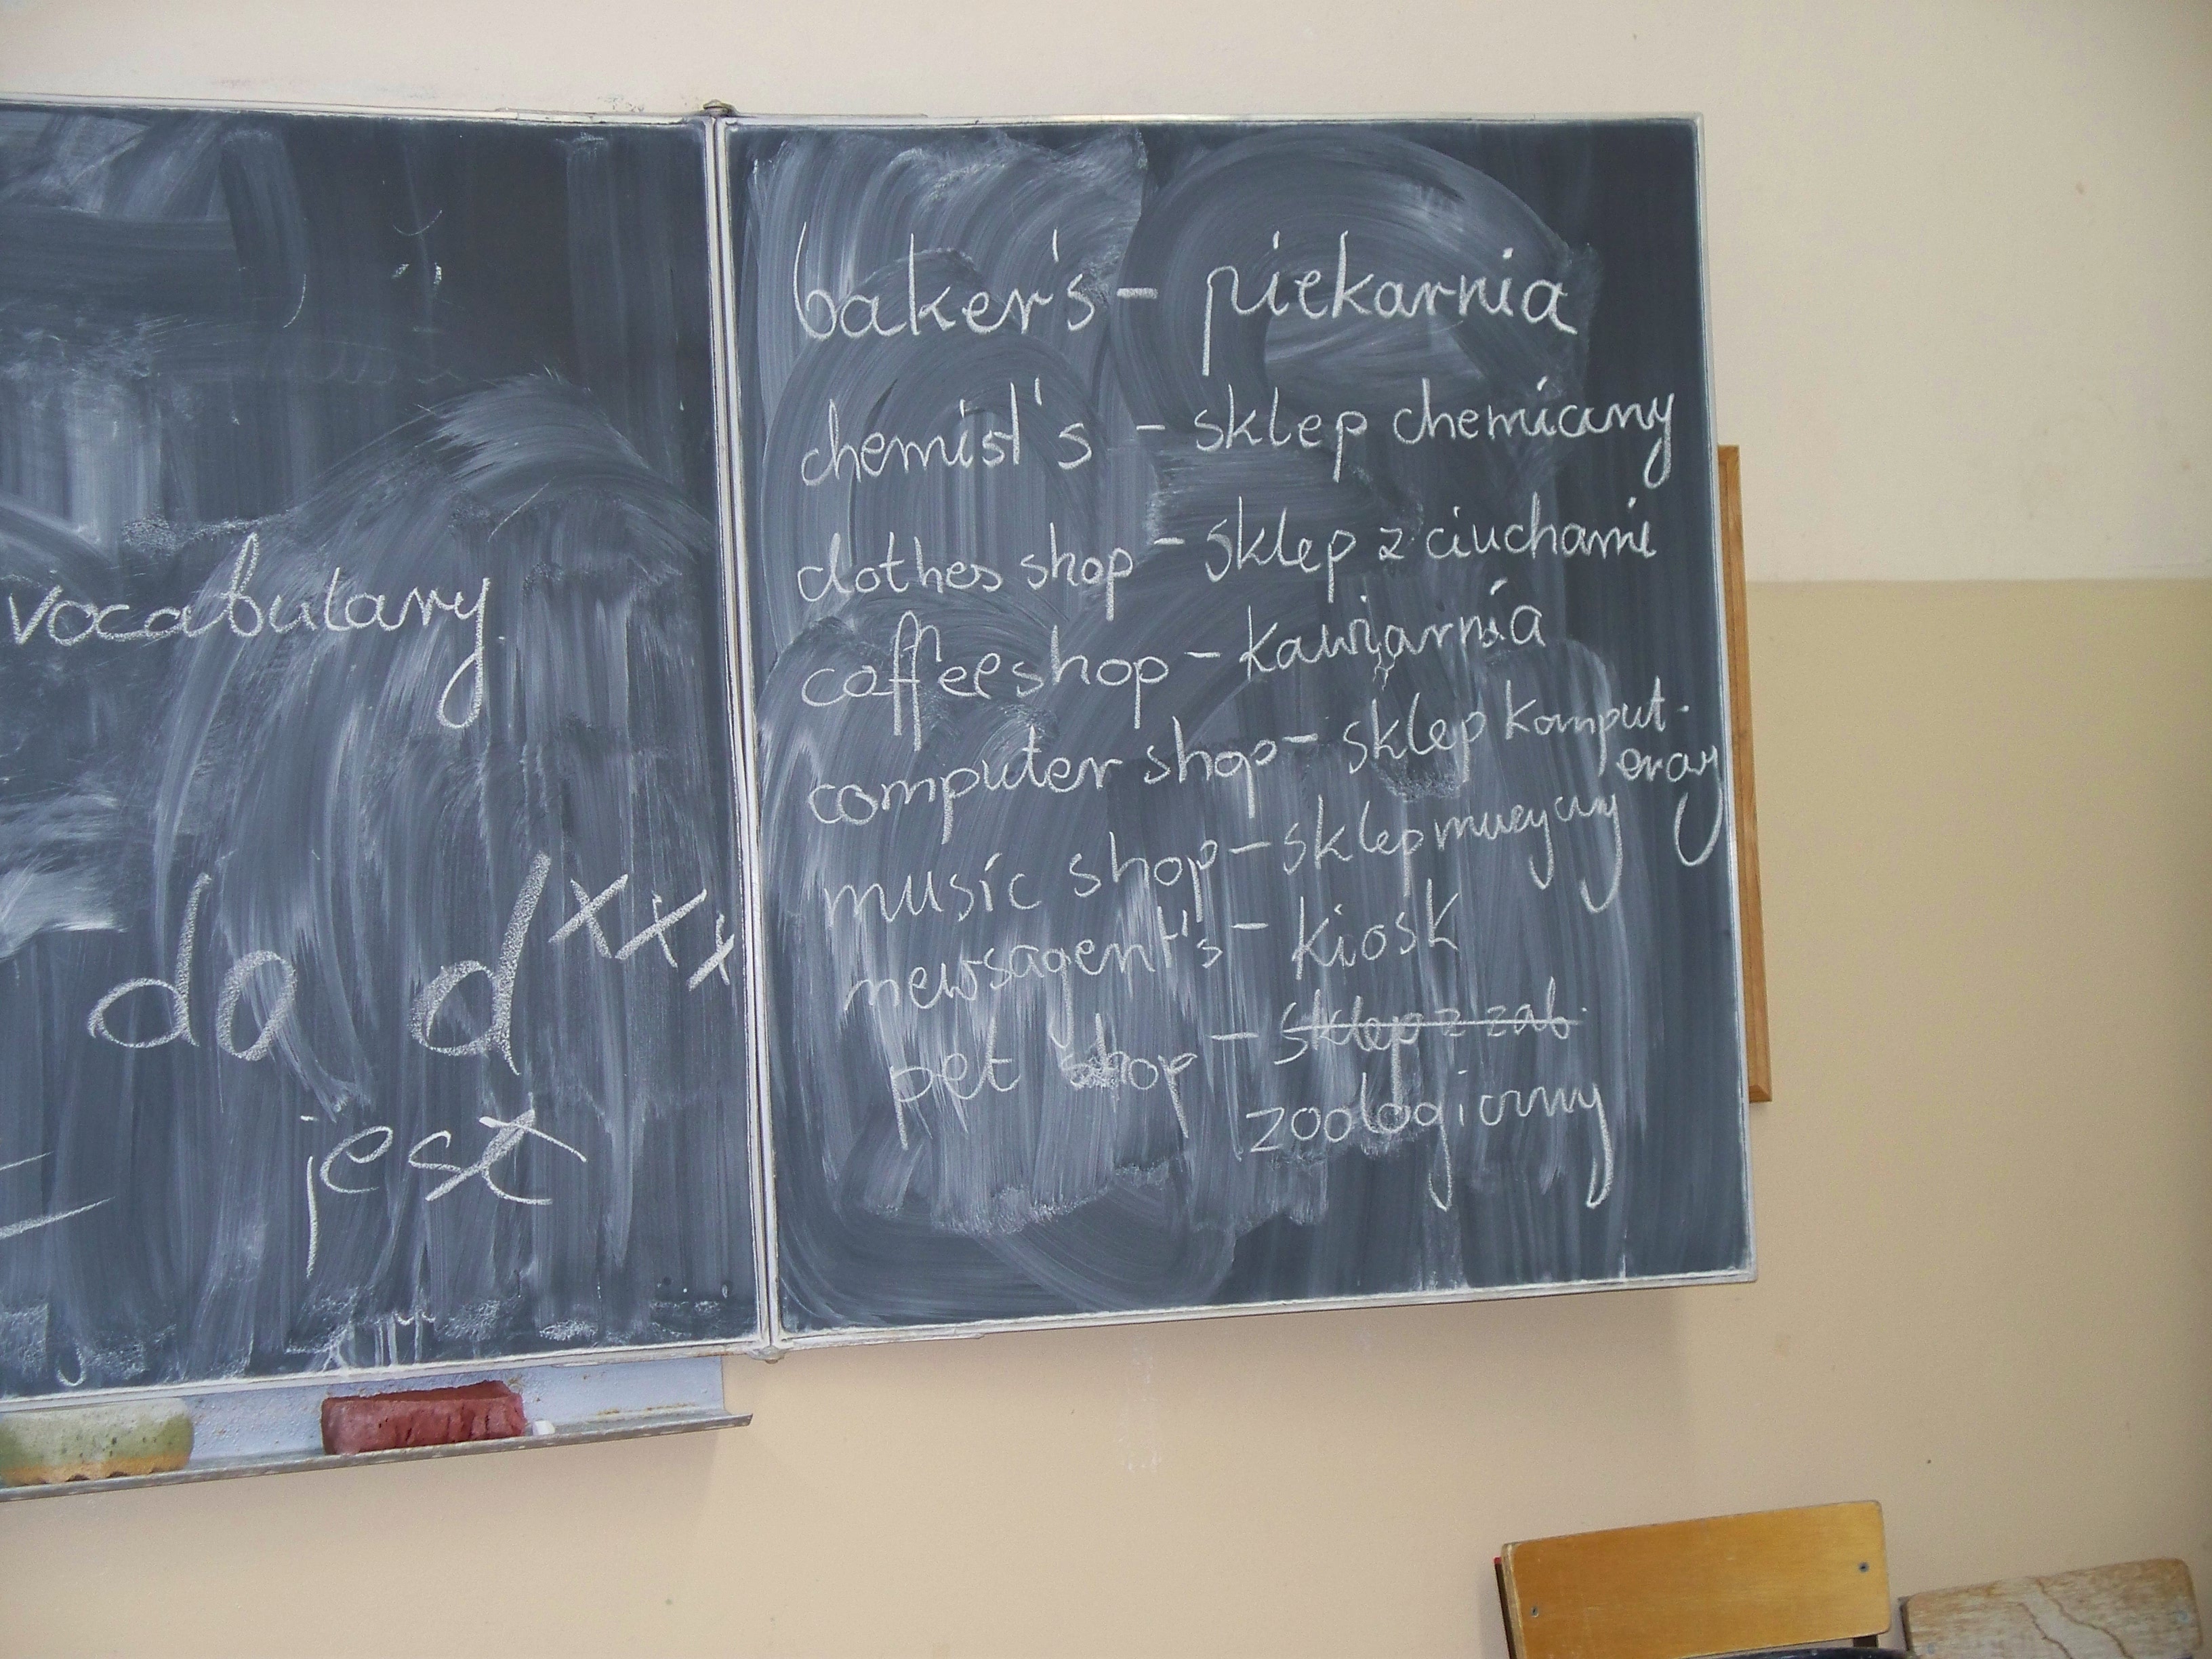 vocabulary
da d xxx
jest
baker's – piekarnia
chemist's – sklep chemiczny
clothes shop – sklep z ciuchami
coffee shop – kawiarnia
computer shop – sklep komput-
erowy
music shop – sklep muzyczny
newsagent's – kiosk
pet shop – sklep z zab.
zoologiczny